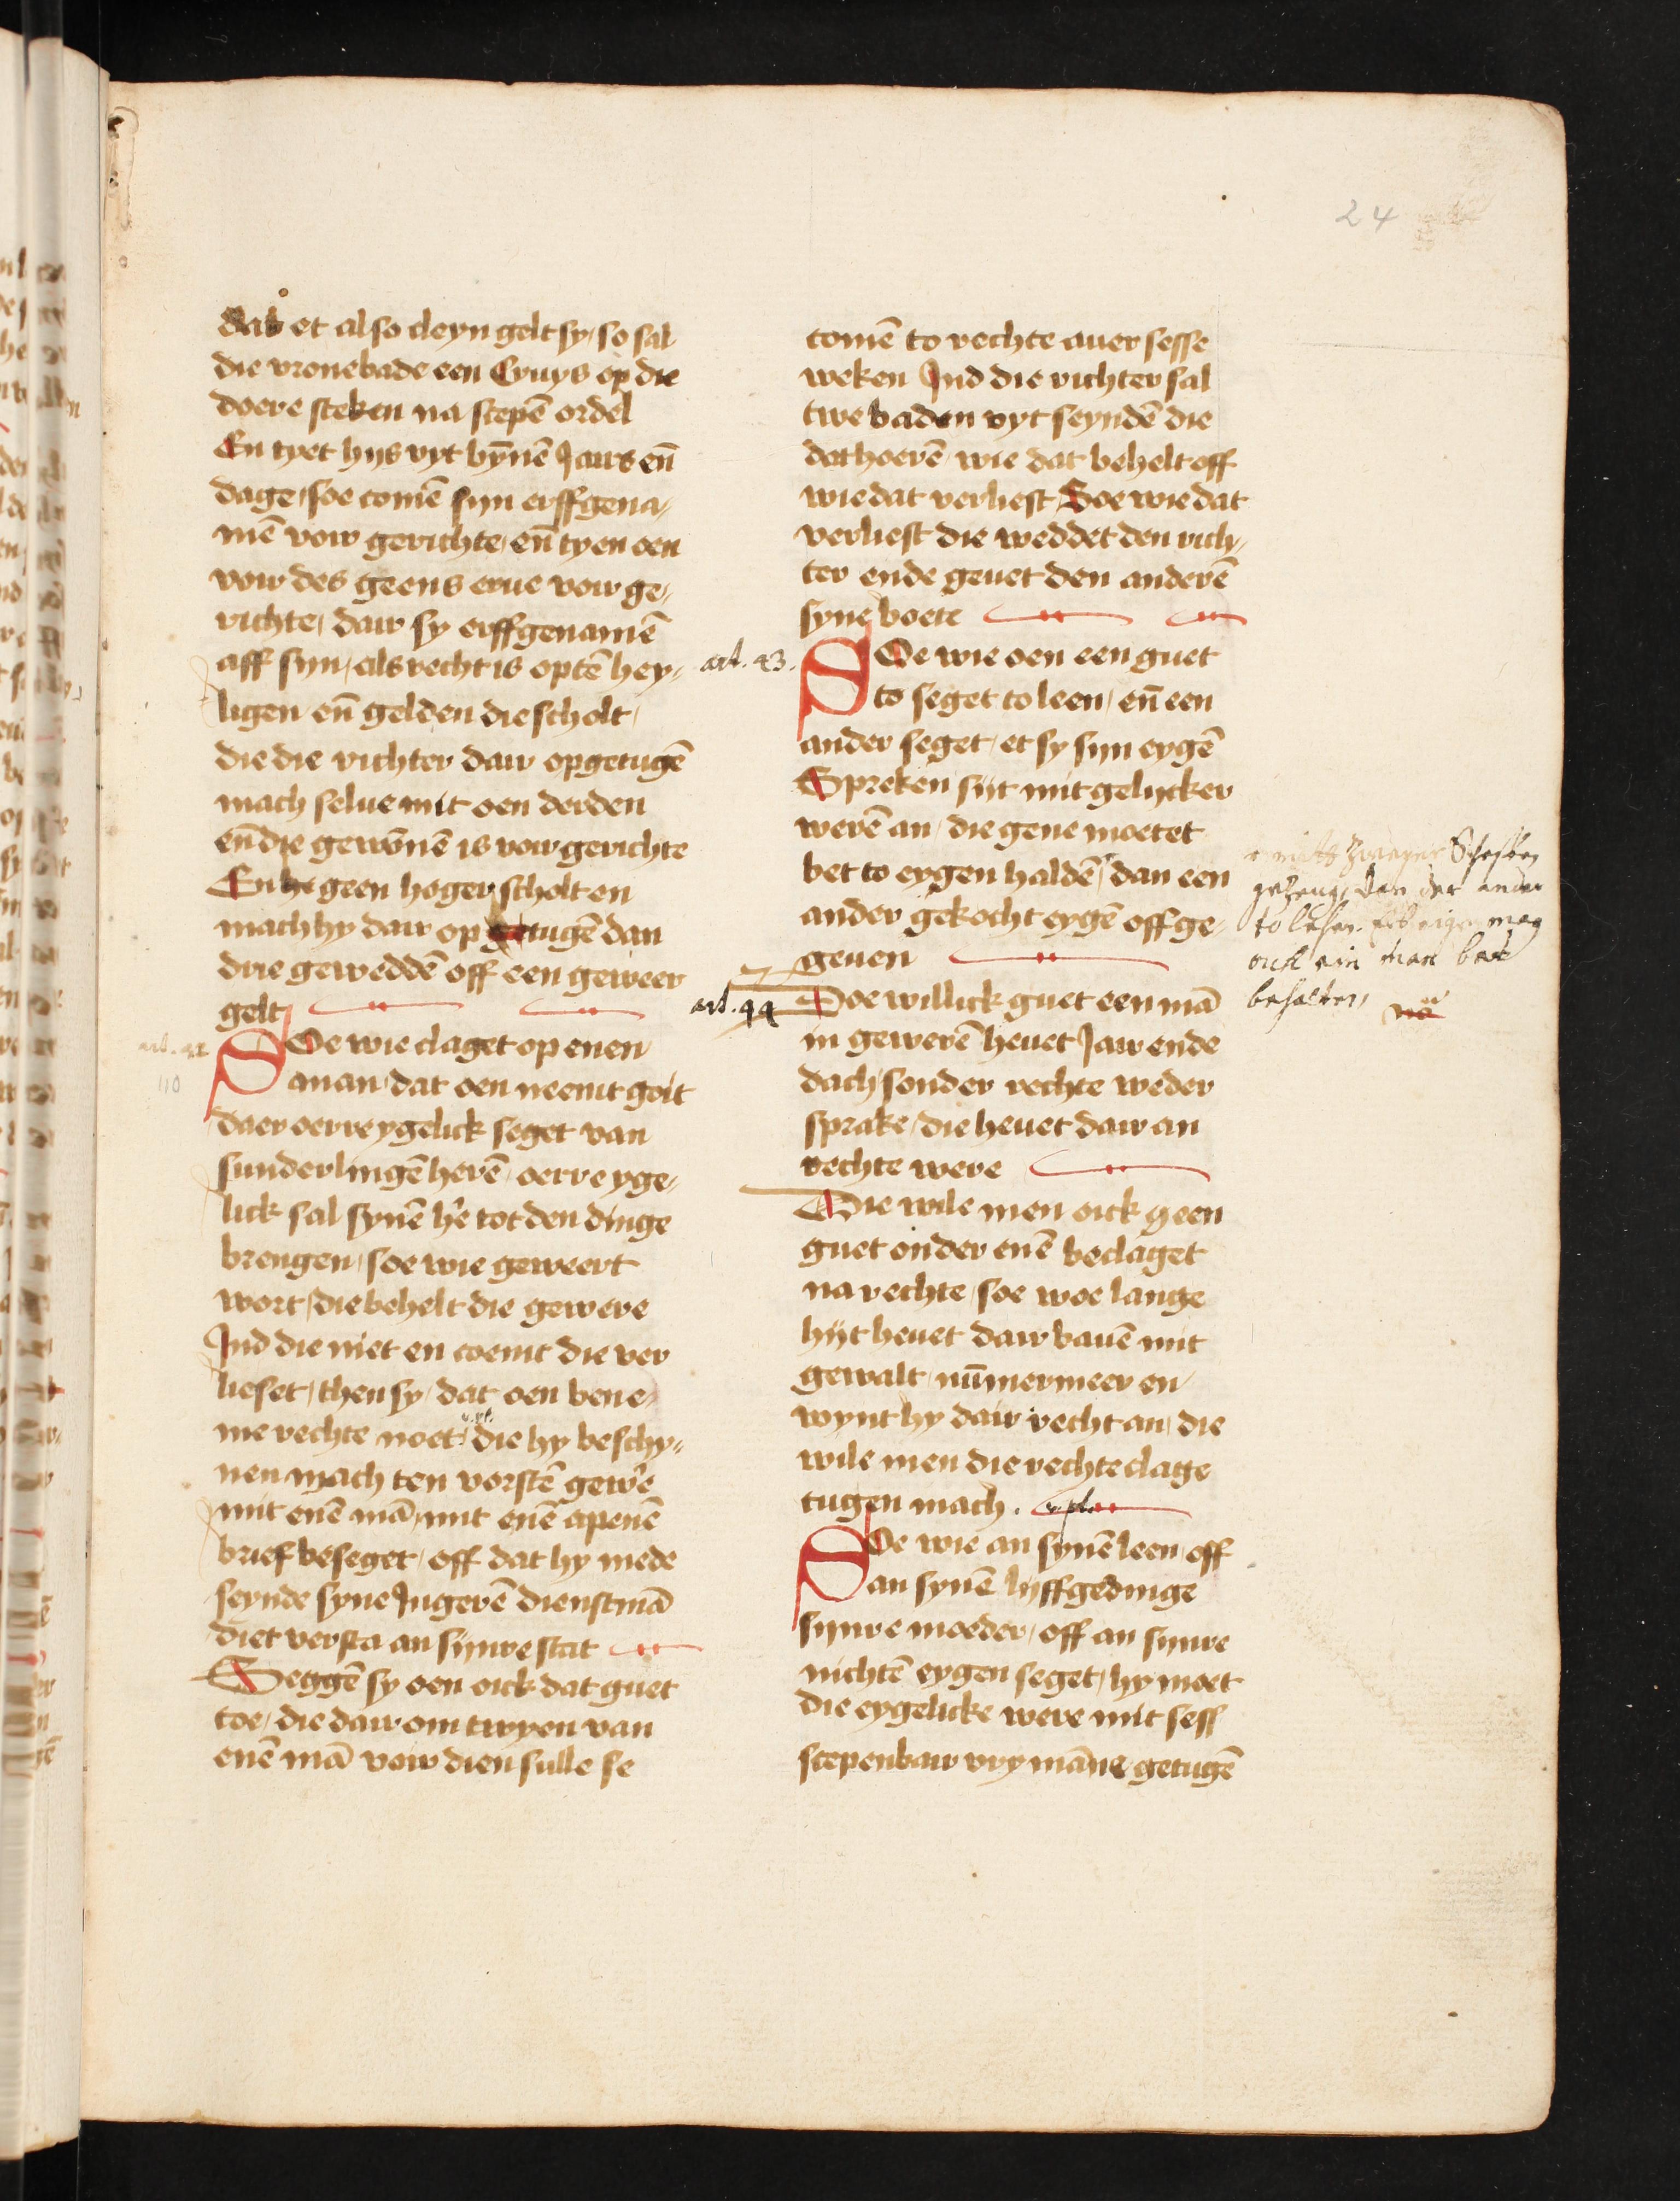 24
dat et also cleyn gelt sy / so sal
die vronebade een Cruys op die
doere steken na scepē ordel
En tyet hijs vyt bȳnē Jairs eñ
dage / soe comē sijn erffgena/
mē voir gerichte / eñ tyen oen
voir des geens erue voir ge/
richte / dair sy erffgenamē
aff sijn / als recht is optē hey/
ligen / eñ gelden die scholt /
die die richter dair op getugē
mach selue mit oen derden
eñ die gewōnē is voir gerichte
En geen hoger scholt en
mach hy dair op getugē dan
drie geweddē off een geweer
gelt
SOe wie claget op enen
man / dat oen neemt goit
daer oerre ygelick seget van
sunderlingē herē / oerre yge/
lick sal synē h'e tot den dinge
brengen / soe wie geweert
wort / die behelt die gewere
Jnd die niet en coemt die ver
lieset / then sy / dat oen bene/
me rechte noet / die hy beschy/
nen mach ten vorstē gew'e
mit enē mā / mit enē apenē
brief beseget / off dat hy mede
seynde syne Jngerē dienstmā
diet versta an sijnre stat
Seggē sy oen oick dat guet
toe / die dair om twyen van
enē mā voir dien sulle se
comē to rechte auer sesse
weken Jnd die richter sal
twe baden vyt seyndē die
dat hoerē / wie dat behelt off
wie dat verliest / Soe wie dat
verliest die weddet den rich/
ter ende geuet den anderē
syne boete
art. 43.
SOe wie oen een guet
to seget to leen / eñ een
ander seget / et sy sijn eygē
Spreken sijt mit gelijcker
werē an / die gene moetet
bet to eygen haldē / dan een
ander gekocht eygē off ge/
geuen
zwayer Scheffen
gezeug, dan der ander
to lehen. Erb eigen mag
ouch ein man bat
behalten,
art. 44
Soe willick guet een mā
in gewerē heuet Jair ende
dach / sonder rechte weder
sprake / die heuet dair an
rechte were
Die wile men oick geen
guet onder enē beclaget
na rechte / soe woe lange
hijt heuet dair bauē mit
gewalt / nūmermeer en /
wynt hy dair recht an / die
wile men die rechte clage
tugen mach.
SOe wie an synē leen / off
an synē lijffgedinge
sijnre moeder / off an sijnre
nichtē eygen seget / hy moet
die eygelicke were mit sess
scepenbair vry māne / getugē